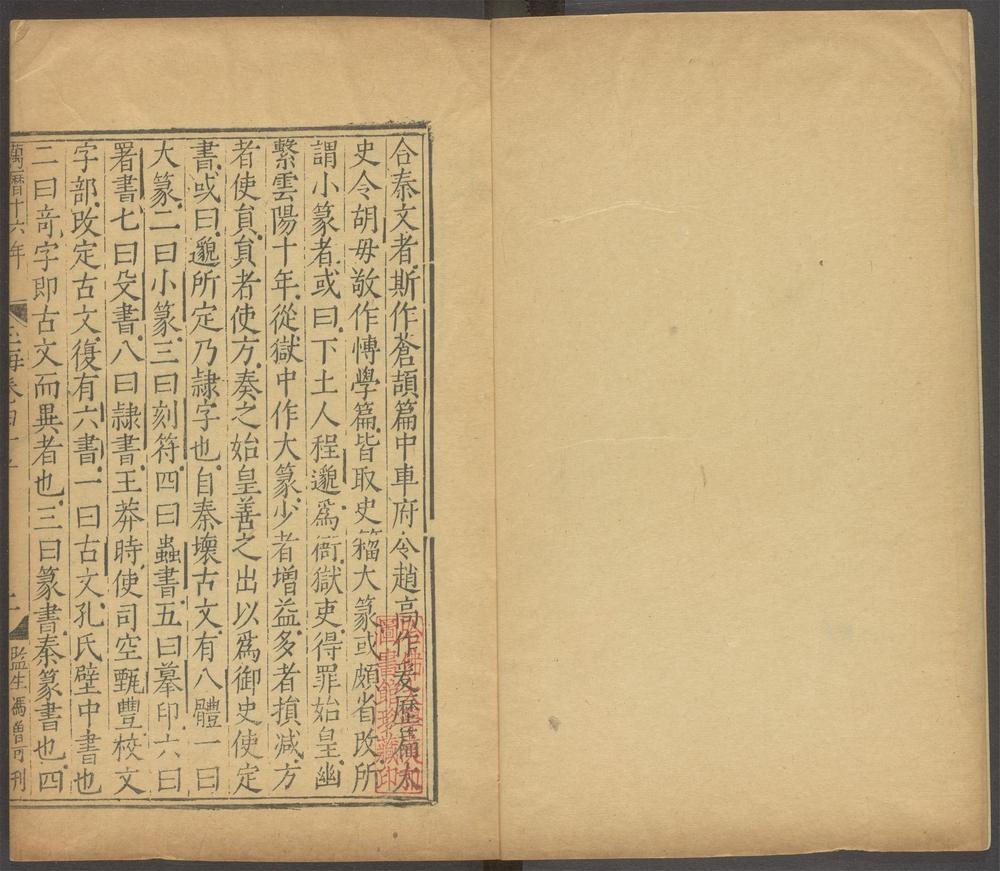 合秦文者斯作蒼頡篇中車府令趙高作爰歷篇太
史令胡毋敬作愽學篇皆取史籀大篆或頗省攺所
謂小篆者或曰下土人程邈爲衙獄吏得罪始皇幽
繫雲陽十年從獄中作大篆少者增益多者損减方
者使貟貟者使方奏之始皇善之出以爲御史使定
書或曰邈所定乃隷字也自秦壞古文有八體一曰
大篆二曰小篆三曰刻符四曰蟲書五曰摹印六曰
署書七曰殳書八曰隷書王莽時使司空甄豐校文
字部攺定古文復有六書一曰古文孔氏壁中書也
二曰竒字即古文而異者也三曰篆書秦篆書也四
萬曆十六年
玉海卷四十
二
監生馮曾可刊
圖書館珍藏印